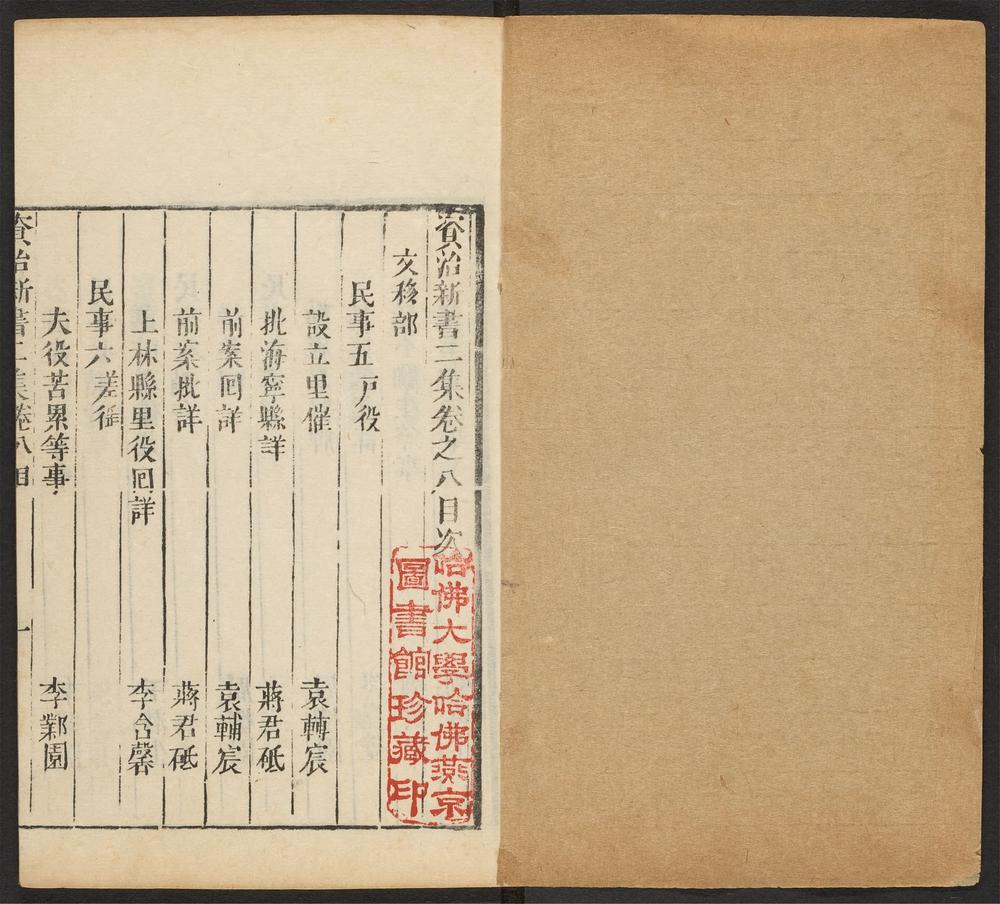 資治新書二集卷之八目次
文移部
民事五戸役
設立里催 袁轉宸
批海寧縣詳 蔣君砥
前案回詳 袁輔宸
前案批詳 蔣君砥
上林縣里役回詳 李含馨
民事六差徭
夫役苦累等事 李鄴園
資治新書二集卷八目 一
哈佛大學哈佛燕京
圖書館珍藏印